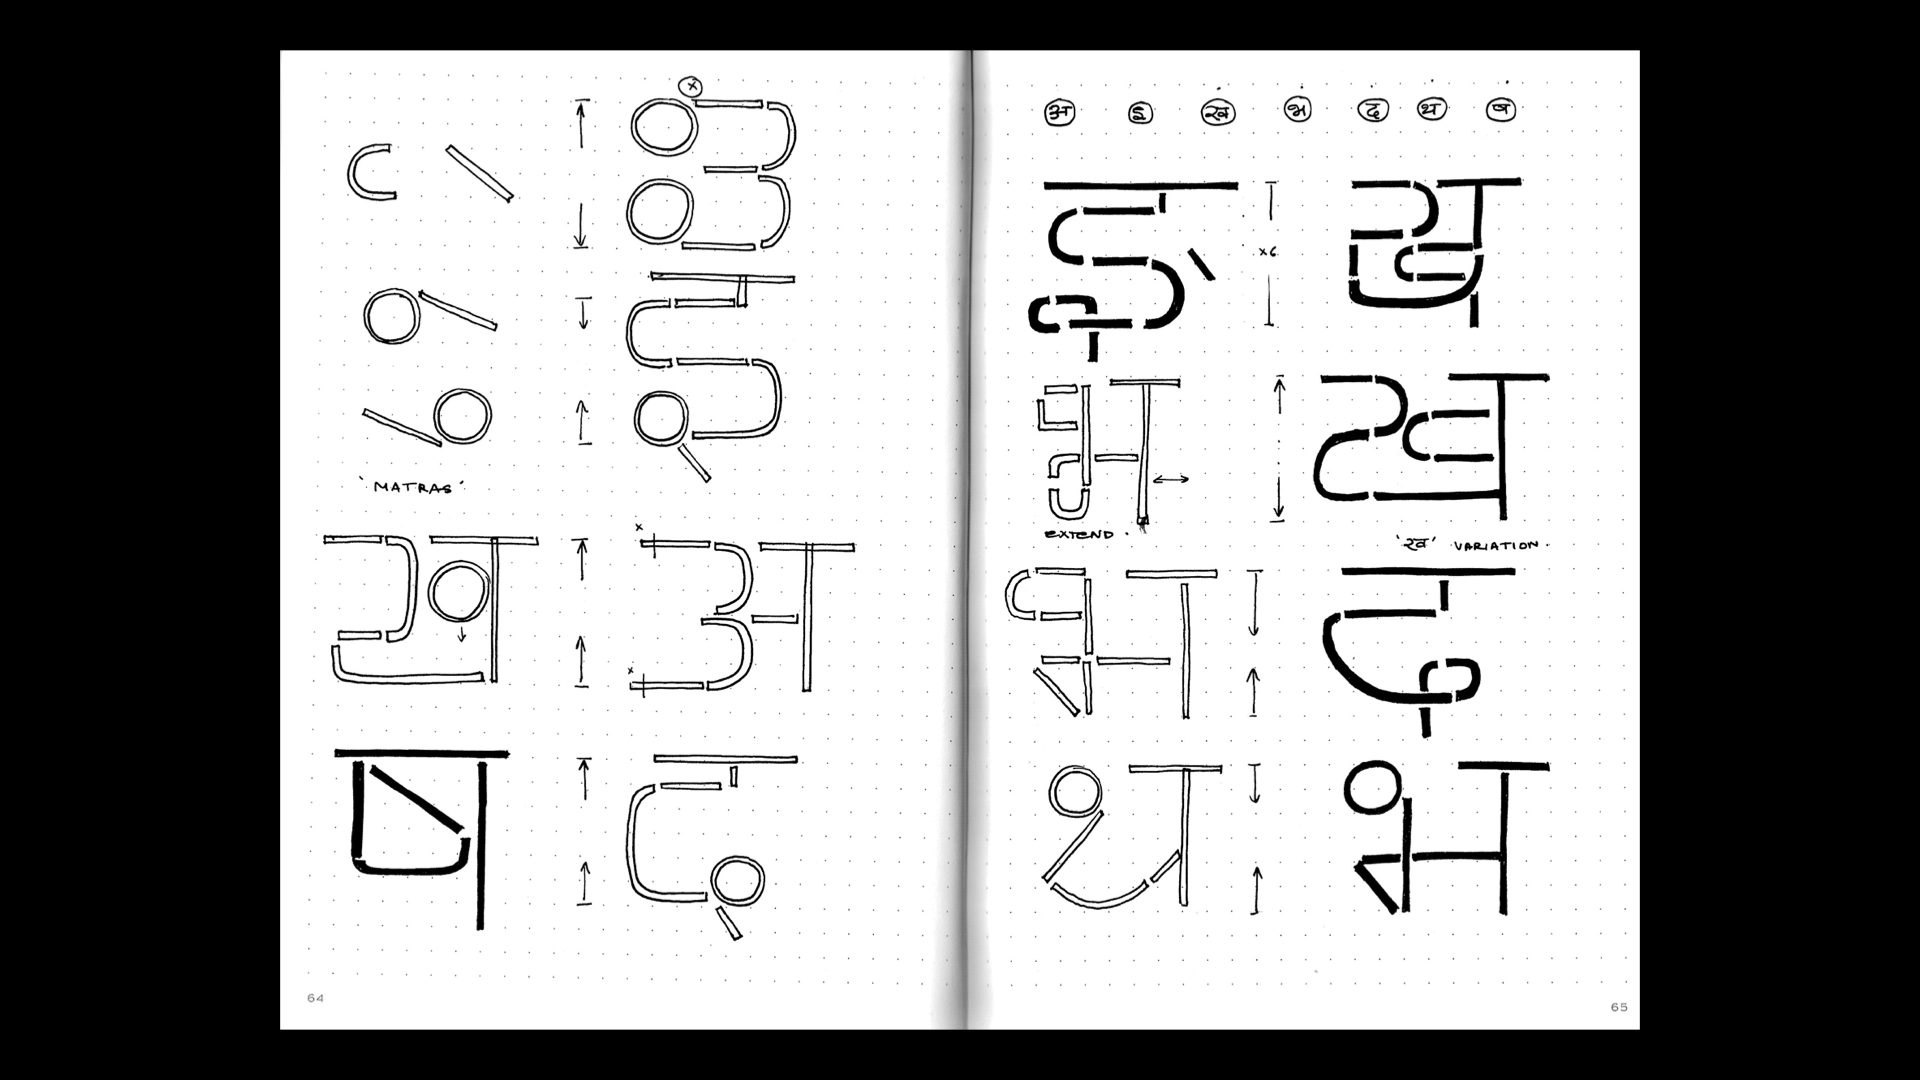 x
इ
'MATRAS'
ख
अ
x
x
ष
द
64
अ इ ख भ द थ ष
इ
x6
ख
भ
ख
EXTEND.
'ख' VARIATION.
भ
द
थ
भ
65